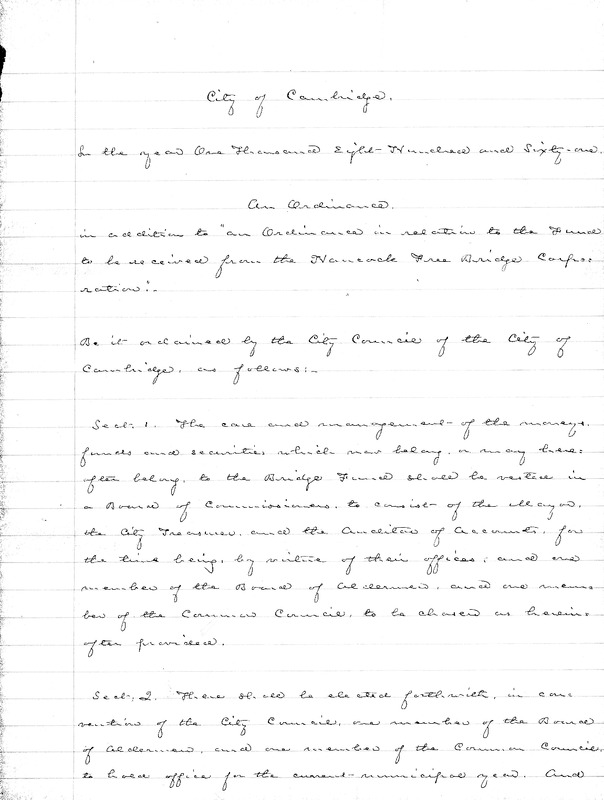 City of Cambridge.
In the year One Thousand Eight Hundred and Sixty-one.
An Ordinance.
in addition to "an Ordinance in relation to the Fund
to be received from the Hancock Free Bridge Corpo=
ration".-
Be it ordained by the City Council of the City of
Cambridge, as follows:-
Sect. 1. The care and management of the moneys,
funds and securities which now belong, or may here=
after belong, to the Bridge Fund shall be vested in
a Board of Commissioners, to consist of the Mayor,
the City Treasurer, and the Auditor of Accounts, for
the time being, by virtue of their offices; and one
member of the Board of Aldermen, and one mem=
ber of the Common Council, to be chosen as herein=
after provided.
Sect. 2. There shall be elected forthwith, in con=
vention of the City Council, one member of the Board
of Aldermen, and one member of the Common Council,
to hold office for the current municipal year. And